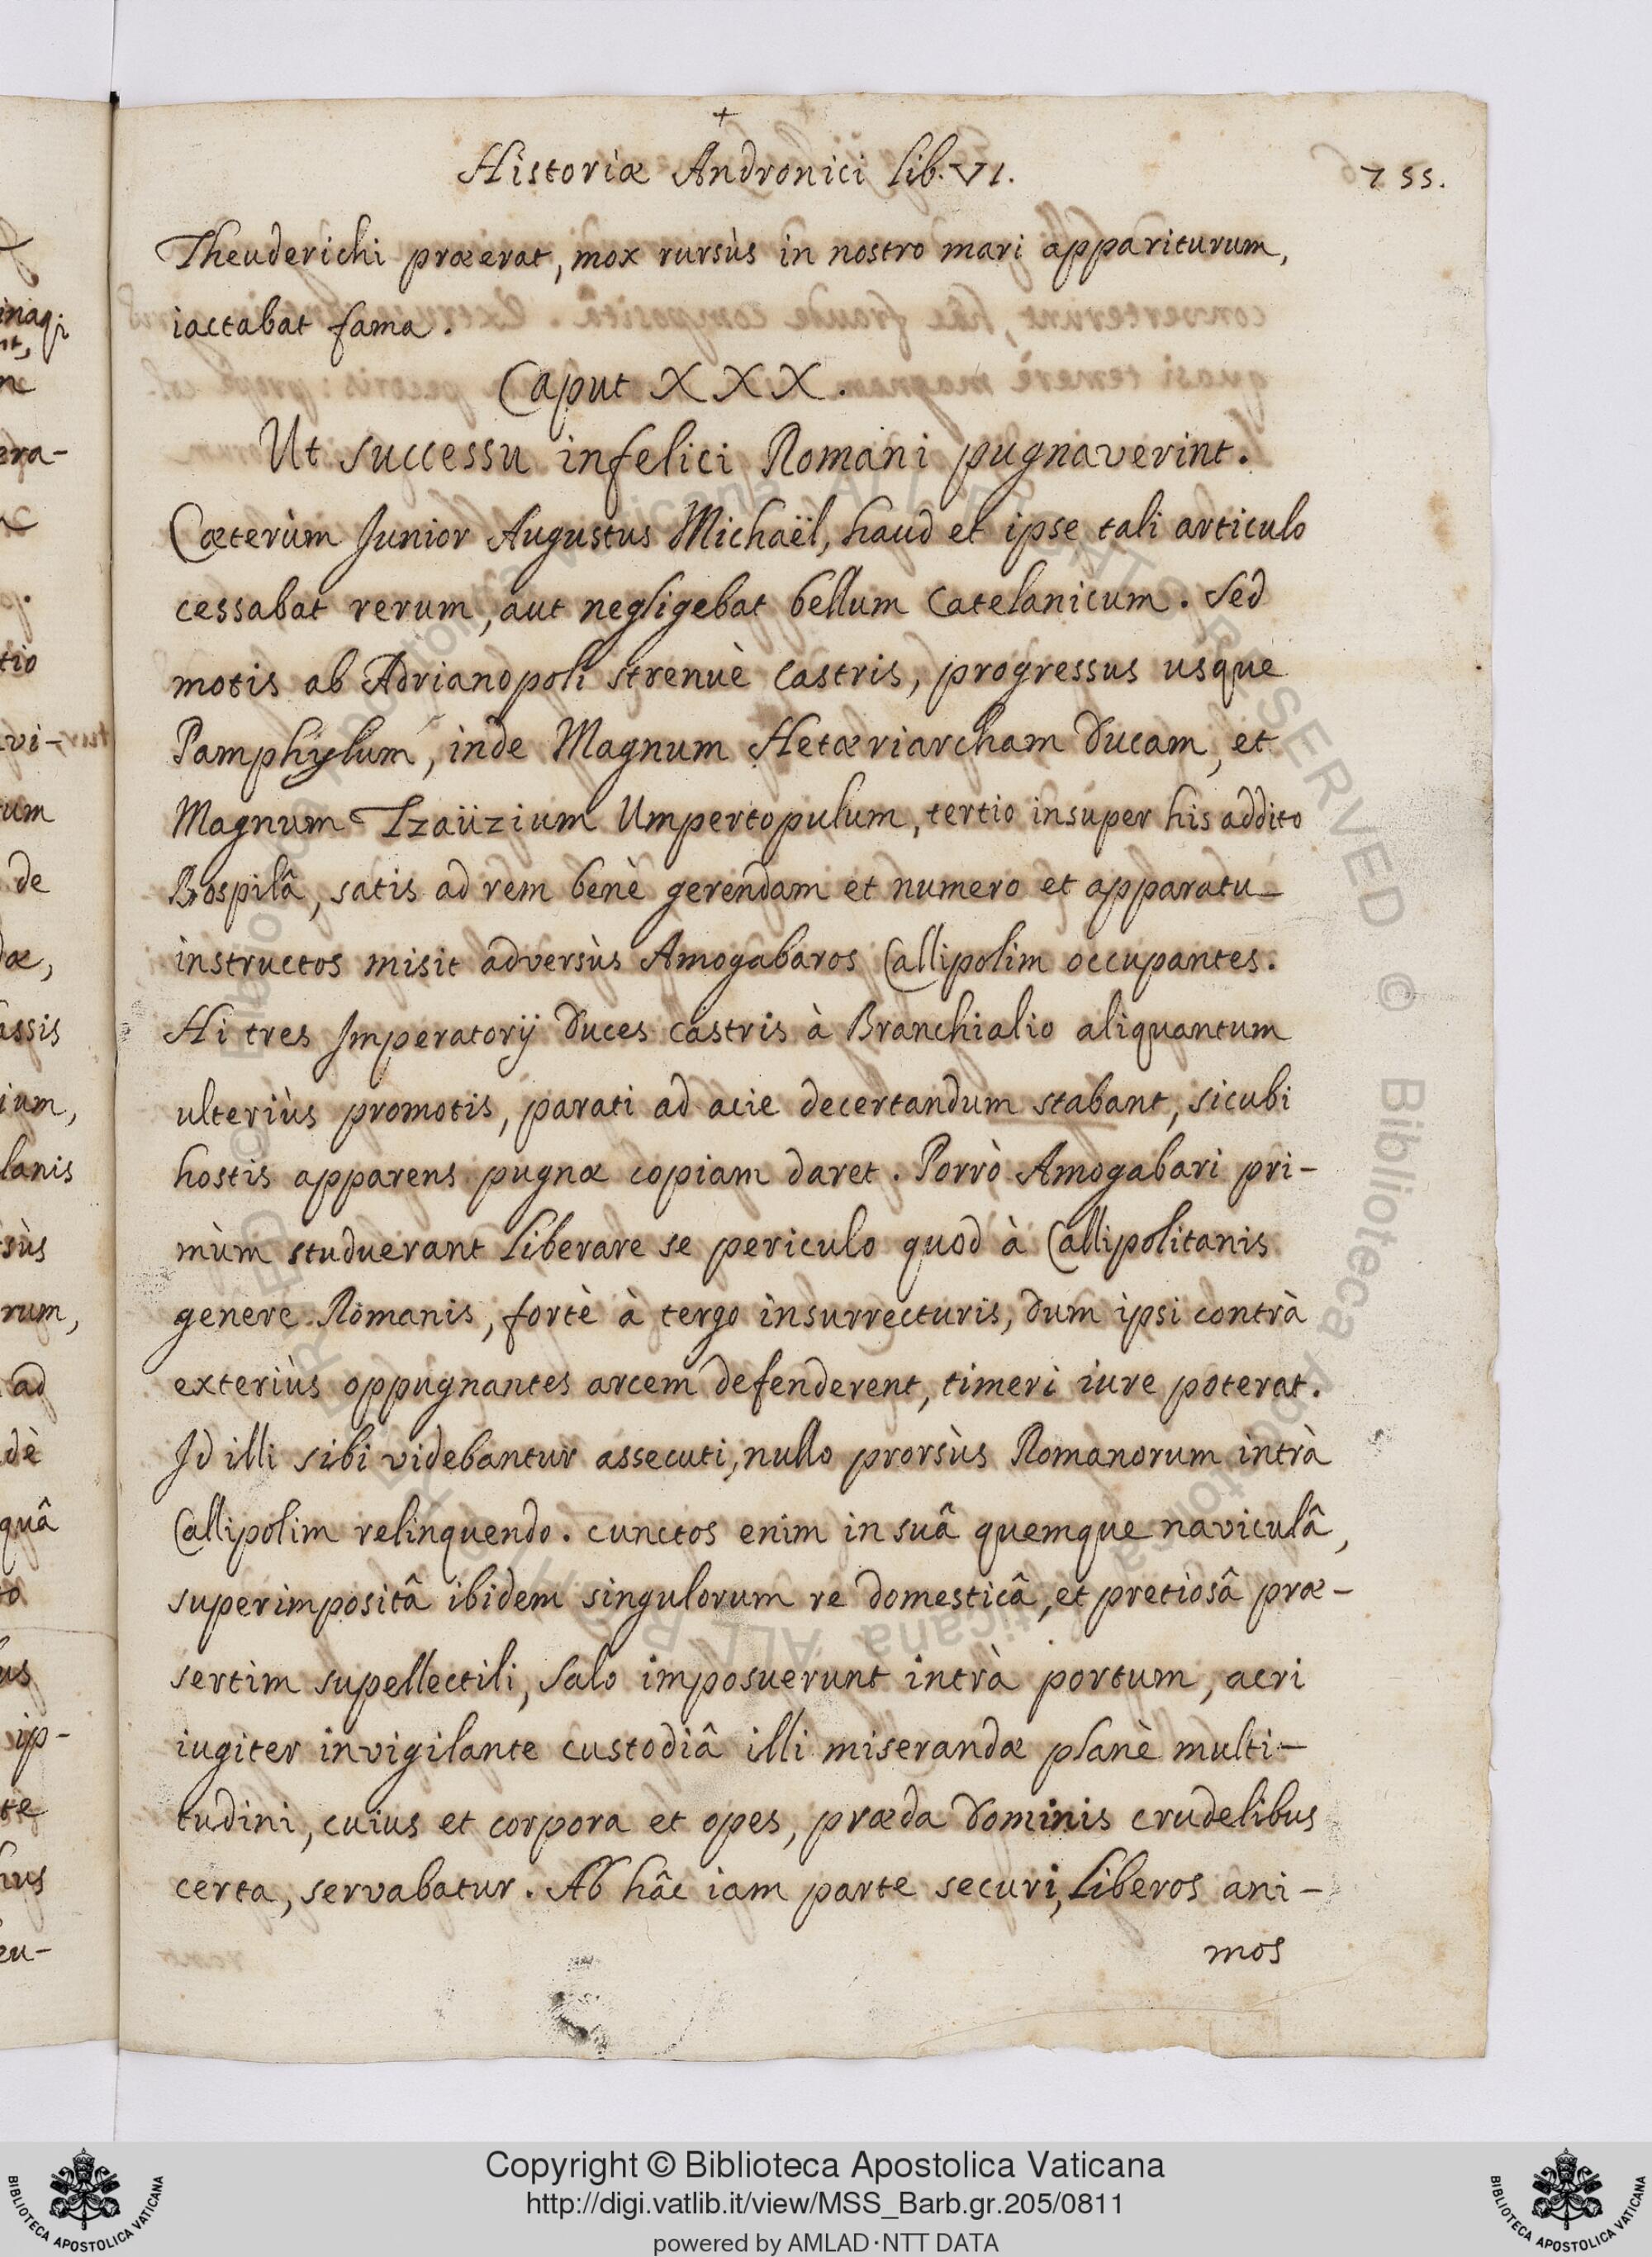 +
Historiæ Andronici lib. VI. 755.
Theuderichi præerat, mox rursùs in nostro mari appariturum,
iactabat fama.
Caput XXX.
Ut successu infelici Romani pugnaverint.
Cæterùm Junior Augustus Michaël, haud et ipse tali articulo
cessabat rerum, aut negligebat bellum Catelanicum. Sed
motis ab Adrianopoli strenuè castris, progressus usque
Pamphylum, inde Magnum Hetæriarcham Ducam, et
Magnum Tzaüzium Umpertopulum, tertio insuper his addito
Bospilâ, satis ad rem benè gerendam et numero et apparatu
instructos misit adversùs Amogabaros Callipolim occupantes.
Hi tres Imperatorij Duces castris à Branchialio aliquantum
ulteriùs promotis, parati ad acie decertandum stabant, sicubi
hostis apparens pugnæ copiam daret. Porrò Amogabari pri-
mùm studuerant liberare se periculo quod à Callipolitanis
genere Romanis, fortè à tergo insurrecturis, dum ipsi contrà
exteriùs oppugnantes arcem defenderent, timeri iure poterat.
Id illi sibi videbantur assecuti, nullo prorsùs Romanorum intrà
Callipolim relinquendo. cunctos enim in suâ quemque naviculâ,
superimpositâ ibidem singulorum re domesticâ, et pretiosâ præ-
sertim supellectili, salo imposuerunt intrà portum, acri
iugiter invigilante custodiâ illi miserandæ planè multi-
tudini, cuius et corpora et opes, præda Dominis crudelibus
certa, servabatur. Ab hâc iam parte securi, liberos ani-
mos
Copyright © Biblioteca Apostolica Vaticana
http://digi.vatlib.it/view/MSS_Barb.gr.205/0811
powered by AMLAD·NTT DATA
BIBLIOTECA APOSTOLICA VATICANA
BIBLIOTECA APOSTOLICA VATICANA